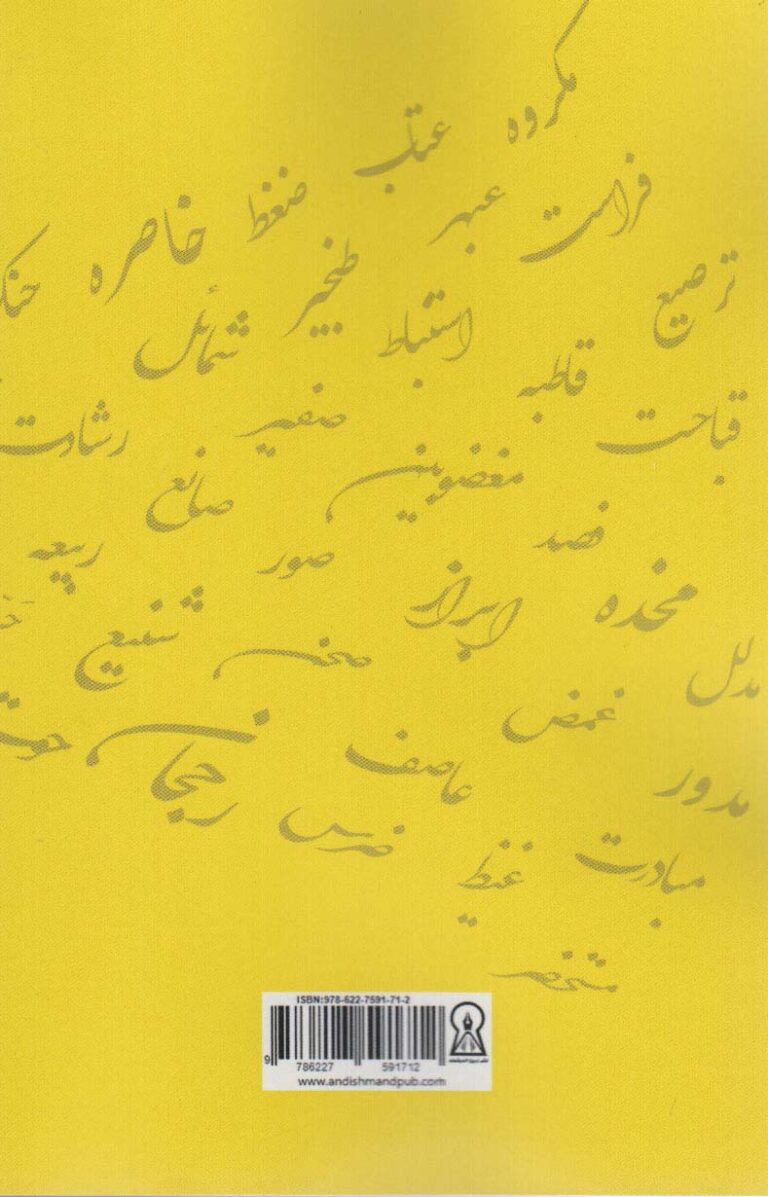 مکروه
عتاب
فراست
عبهر
ضغظ
خاصره
ترصیع
طنجیر
استنباط
شمائل
قاطبه
قباحت
صفیر
رشادت
مغضوبین
صانع
فصد
صور
ربیعه
مخده
ابراز
شنیع
مدلل
غمض
عاصف
رجحان
مدور
ضرس
مبادرت
غیظ
ISBN:978-622-7591-71-2
9 786227 591712
www.andishmandpub.com